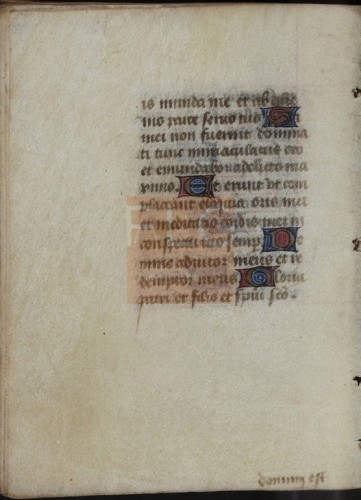 is munda me et ab alie
nis parce servo tuo Si
mei non fuerint domina
ti tunc immaculatus ero
et emundabor a delicto ma
ximo. Et erunt ut com
placeant eloquia oris mei
et meditatio cordis mei in
conspectu tuo semp. Do
mine adiutor meus et re
demptor meus Gloria
patri et filio et spui sco.
domini est